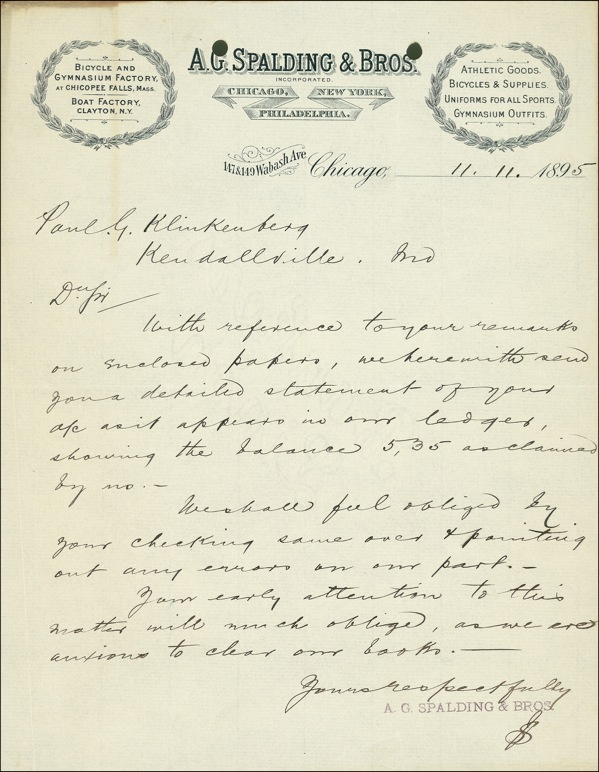 A.G. SPALDING & BROS.
INCORPORATED.
CHICAGO, NEW YORK,
PHILADELPHIA.
BICYCLE AND
GYMNASIUM FACTORY,
AT CHICOPEE FALLS, MASS.
BOAT FACTORY,
CLAYTON, N.Y.
ATHLETIC GOODS.
BICYCLES & SUPPLIES.
UNIFORMS FOR ALL SPORTS.
GYMNASIUM OUTFITS.
147 & 149 Wabash Ave Chicago, 11. 11. 1895
Paul G. Klinkenberg
Kendallville. Ind
Dr Sir
With reference to your remarks
on enclosed papers, we herewith send
you a detailed statement of your
a/c as it appears in our ledger,
showing the balance 5,35 as claimed
by us. -
We shall feel obliged by
your checking same over & pointing
out any errors on our part. -
Your early attention to this
matter will much oblige, as we are
anxious to clear our books. -
Yours respectfully
A. G. SPALDING & BROS.